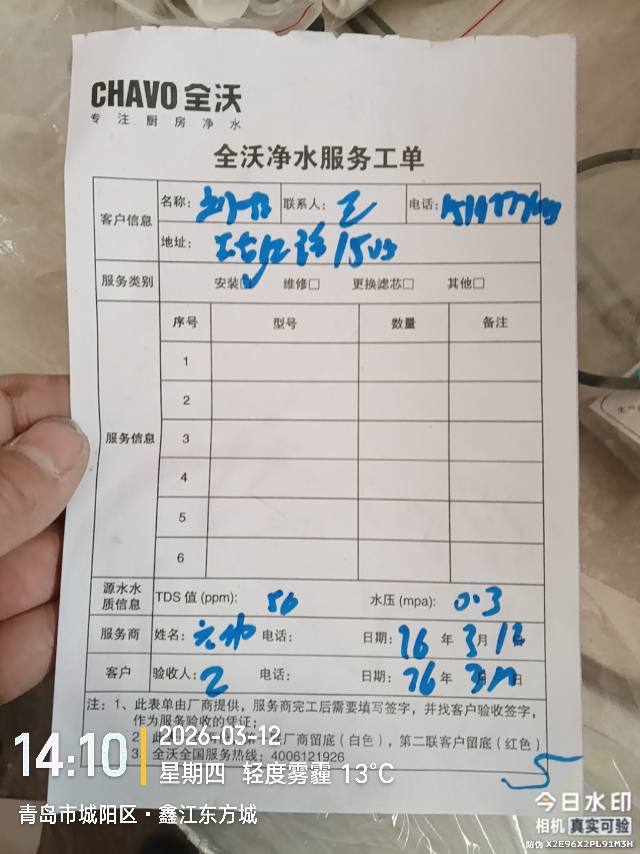 CHAVO 全沃
专注厨房净水
全沃净水服务工单
客户信息 名称： 联系人：王 电话：
地址： 1503
服务类别 安装☑ 维修□ 更换滤芯□ 其他□
序号 型号 数量 备注
1
2
服务信息 3
4
5
6
源水水质信息 TDS 值 (ppm): 56 水压 (mpa): 0.3
服务商 姓名： 电话： 日期： 26 年 3 月 12 日
客户 验收人： 电话： 日期： 26 年 3 月 12 日
注：1、此表单由厂商提供，服务商完工后需要填写签字，并找客户验收签字，
作为服务验收的凭证；
2 此 厂商留底（白色），第二联客户留底（红色）
3、全沃全国服务热线：4006121926
14:10
2026-03-12
星期四 轻度雾霾 13°C
青岛市城阳区·鑫江东方城
今日水印
相机 真实可验
防伪 X2E96X2PL91M3H